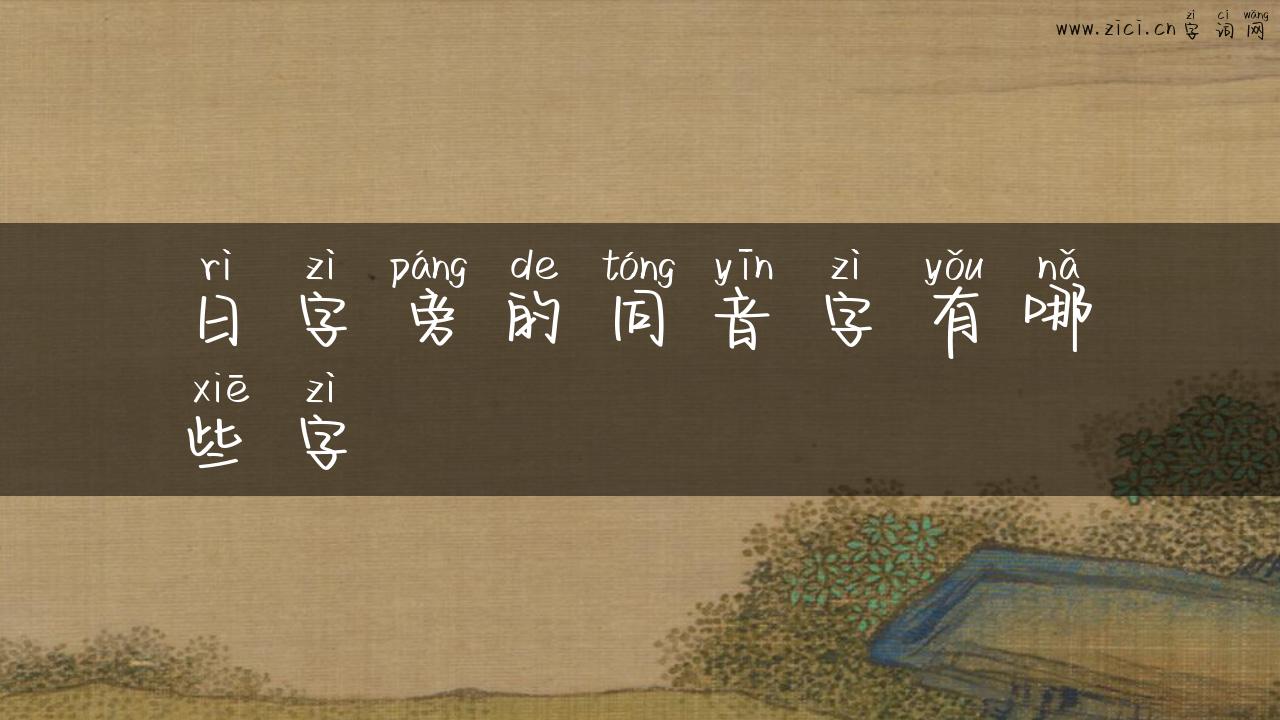 zì cí wǎng
www.zici.cn 字词网
rì zì páng de tóng yīn zì yǒu nǎ
日字旁的同音字有哪
xiē zì
些字